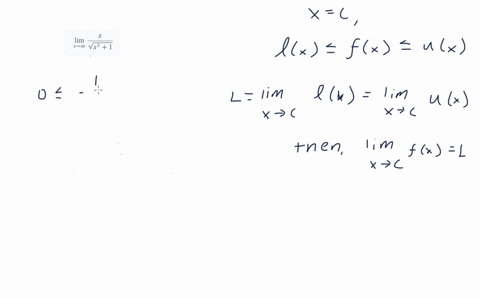 x = c,
lim x→∞ x / √(x³ + 1)
l(x) ≤ f(x) ≤ u(x)
0 ≤ - 1
L = lim x→c l(x) = lim x→c u(x)
then, lim x→c f(x) = L